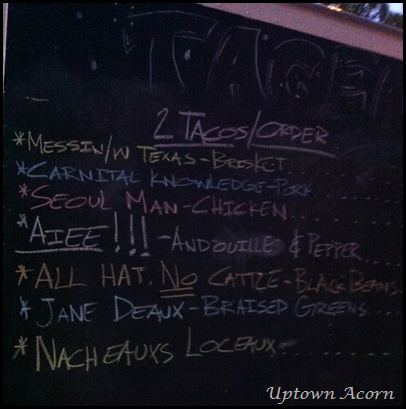 2 TACOS/ORDER
*MESSIN/W TEXAS-BRISKET
*CARNITAL KNOWLEDGE-PORK
*SEOUL MAN-CHICKEN
*AIEE!!!-ANDOUILLE & PEPPER
*ALL HAT, NO CATTLE-BLACK BEANS
*JANE DEAUX-BRAISED GREENS
*NACHEAUXS LOCEAUX-
Uptown Acorn